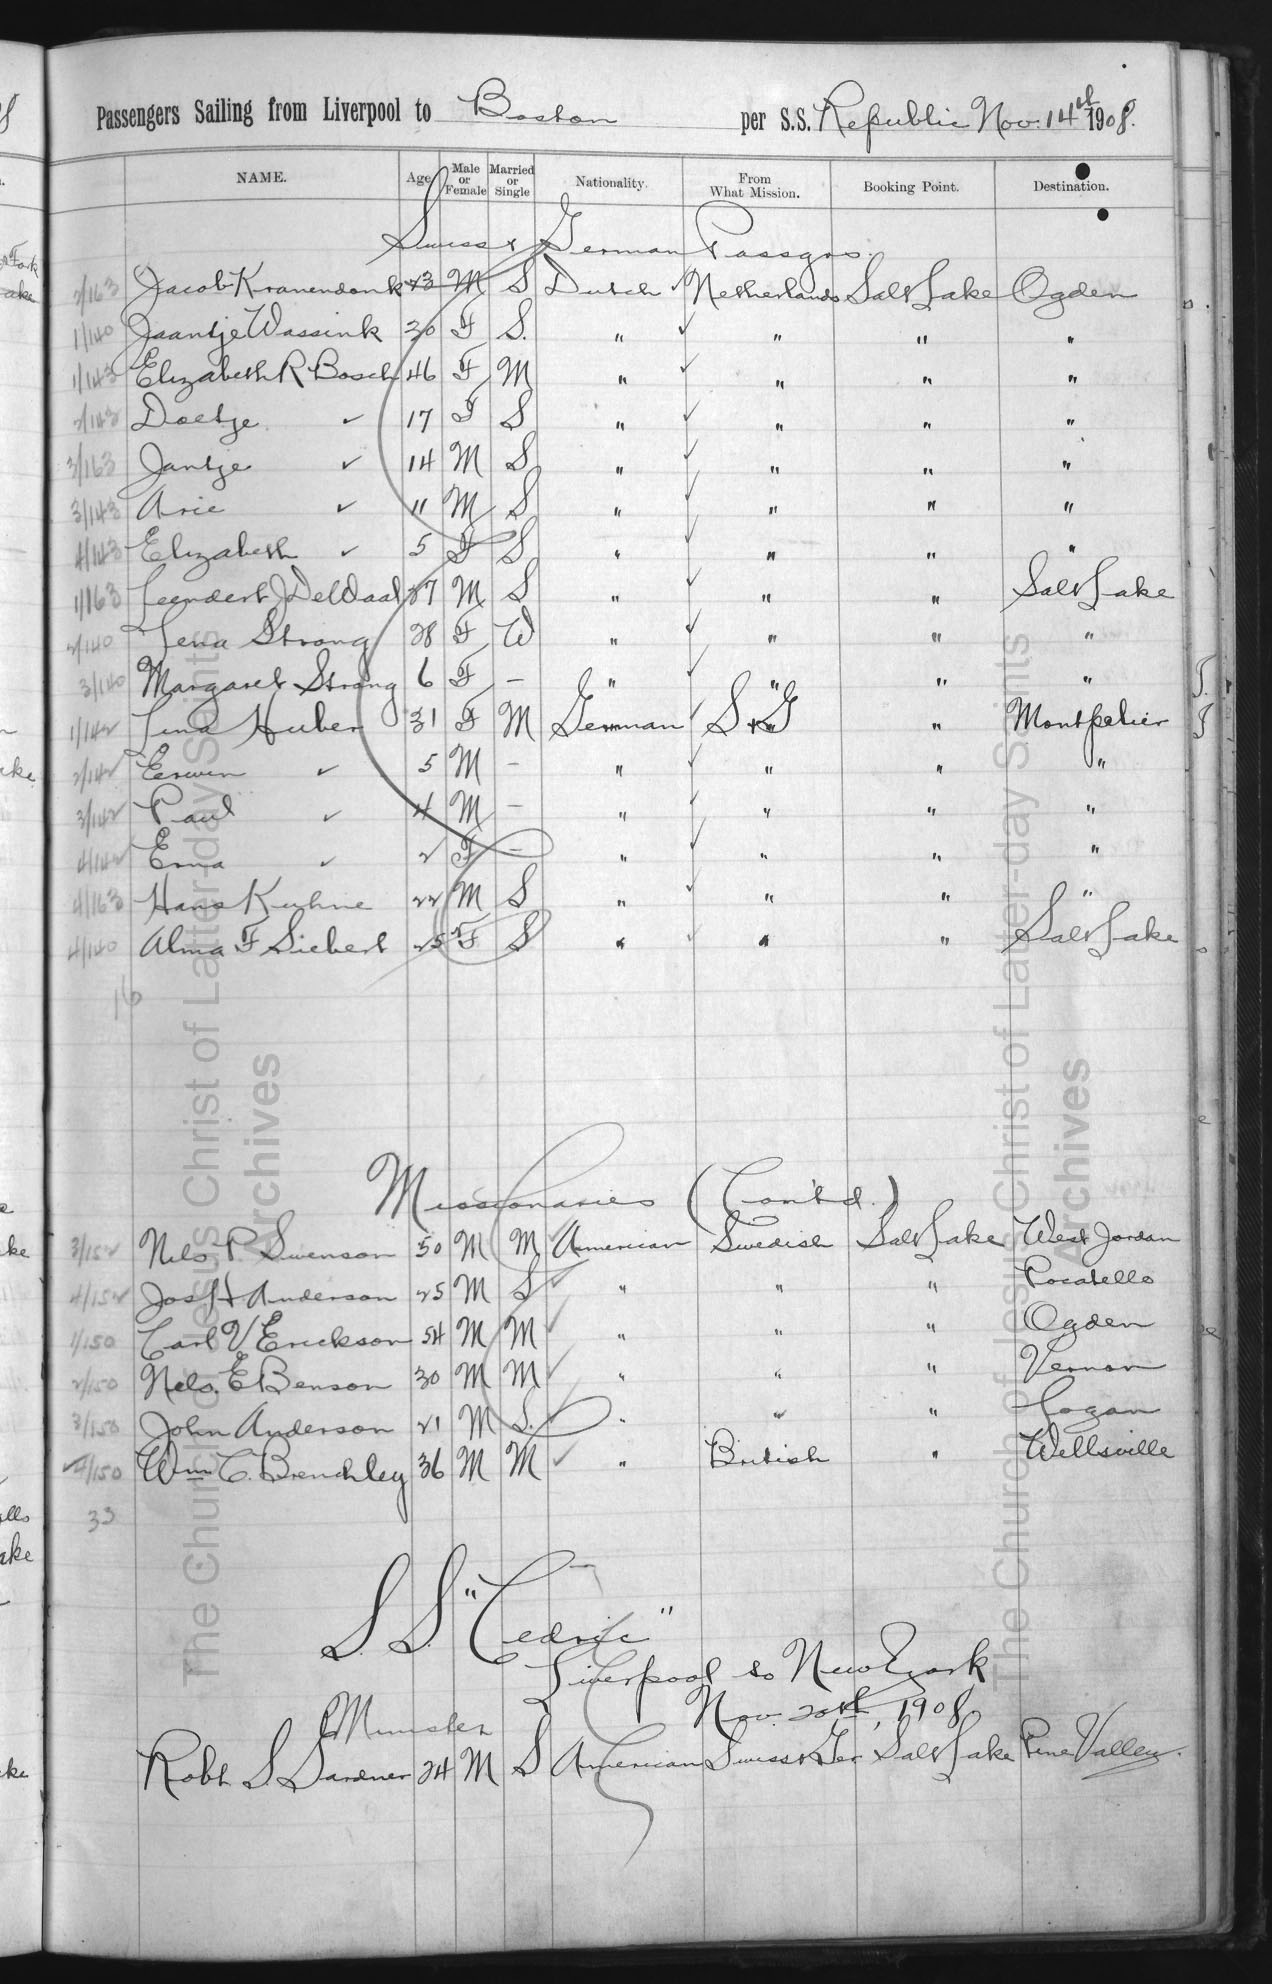 Passengers Sailing from Liverpool to Boston per S.S. Republic Nov. 14th 1908.
NAME. Age Male or Female Married or Single Nationality. From What Mission. Booking Point. Destination.
Swiss & German Passgrs.
2/163 Jacob Kranendonk 43 M S Dutch ✓ Netherlands Salt Lake Ogden
1/140 Jaantje Wassink 30 F S. " ✓ " " "
1/143 Elizabeth R Bosch 46 F M " ✓ " " "
2/143 Doetje ✓ 17 F S " ✓ " " "
3/163 Jantje ✓ 14 M S " ✓ " " "
3/143 Arie ✓ 11 M S " ✓ " " "
4/143 Elizabeth ✓ 5 F S " ✓ " " "
1/163 Leendert J DeWaal 27 M S " ✓ " " Salt Lake
2/140 Lena Strong 28 F W " ✓ " " "
3/140 Margaret Strong 6 F – " ✓ " " "
1/142 Lina Huber 31 F M German ✓ S & G " Montpelier
2/142 Erwin ✓ 5 M – " ✓ " " "
3/142 Paul ✓ 4 M – " ✓ " " "
4/142 Erna ✓ 2 F – " ✓ " " "
4/163 Hans Kuhne 22 M S " ✓ " " "
4/140 Alma F Siebert 25 F S " ✓ " " Salt Lake
16
Missionaries (Cont'd.)
3/152 Nels P Swenson 50 M M American Swedish Salt Lake West Jordan
4/152 Jos H Anderson 25 M S ✓ " " " Pocatello
1/150 Carl V Erickson 54 M M ✓ " " " Ogden
2/150 Nels. E Benson 30 M M ✓ " " " Vernon
3/150 John Anderson 21 M S. ✓ " " " Logan
✓ 4/150 Wm C. Brenchley 36 M M ✓ " British " Wellsville
33
S.S. "Cedric"
Liverpool to New York
Nov. 20th, 1908
Minister
Robt S Gardner 24 M S American Swiss & Ger Salt Lake Pine Valley.
The Church of Jesus Christ of Latter-day Saints
Archives
The Church of Jesus Christ of Latter-day Saints
Archives